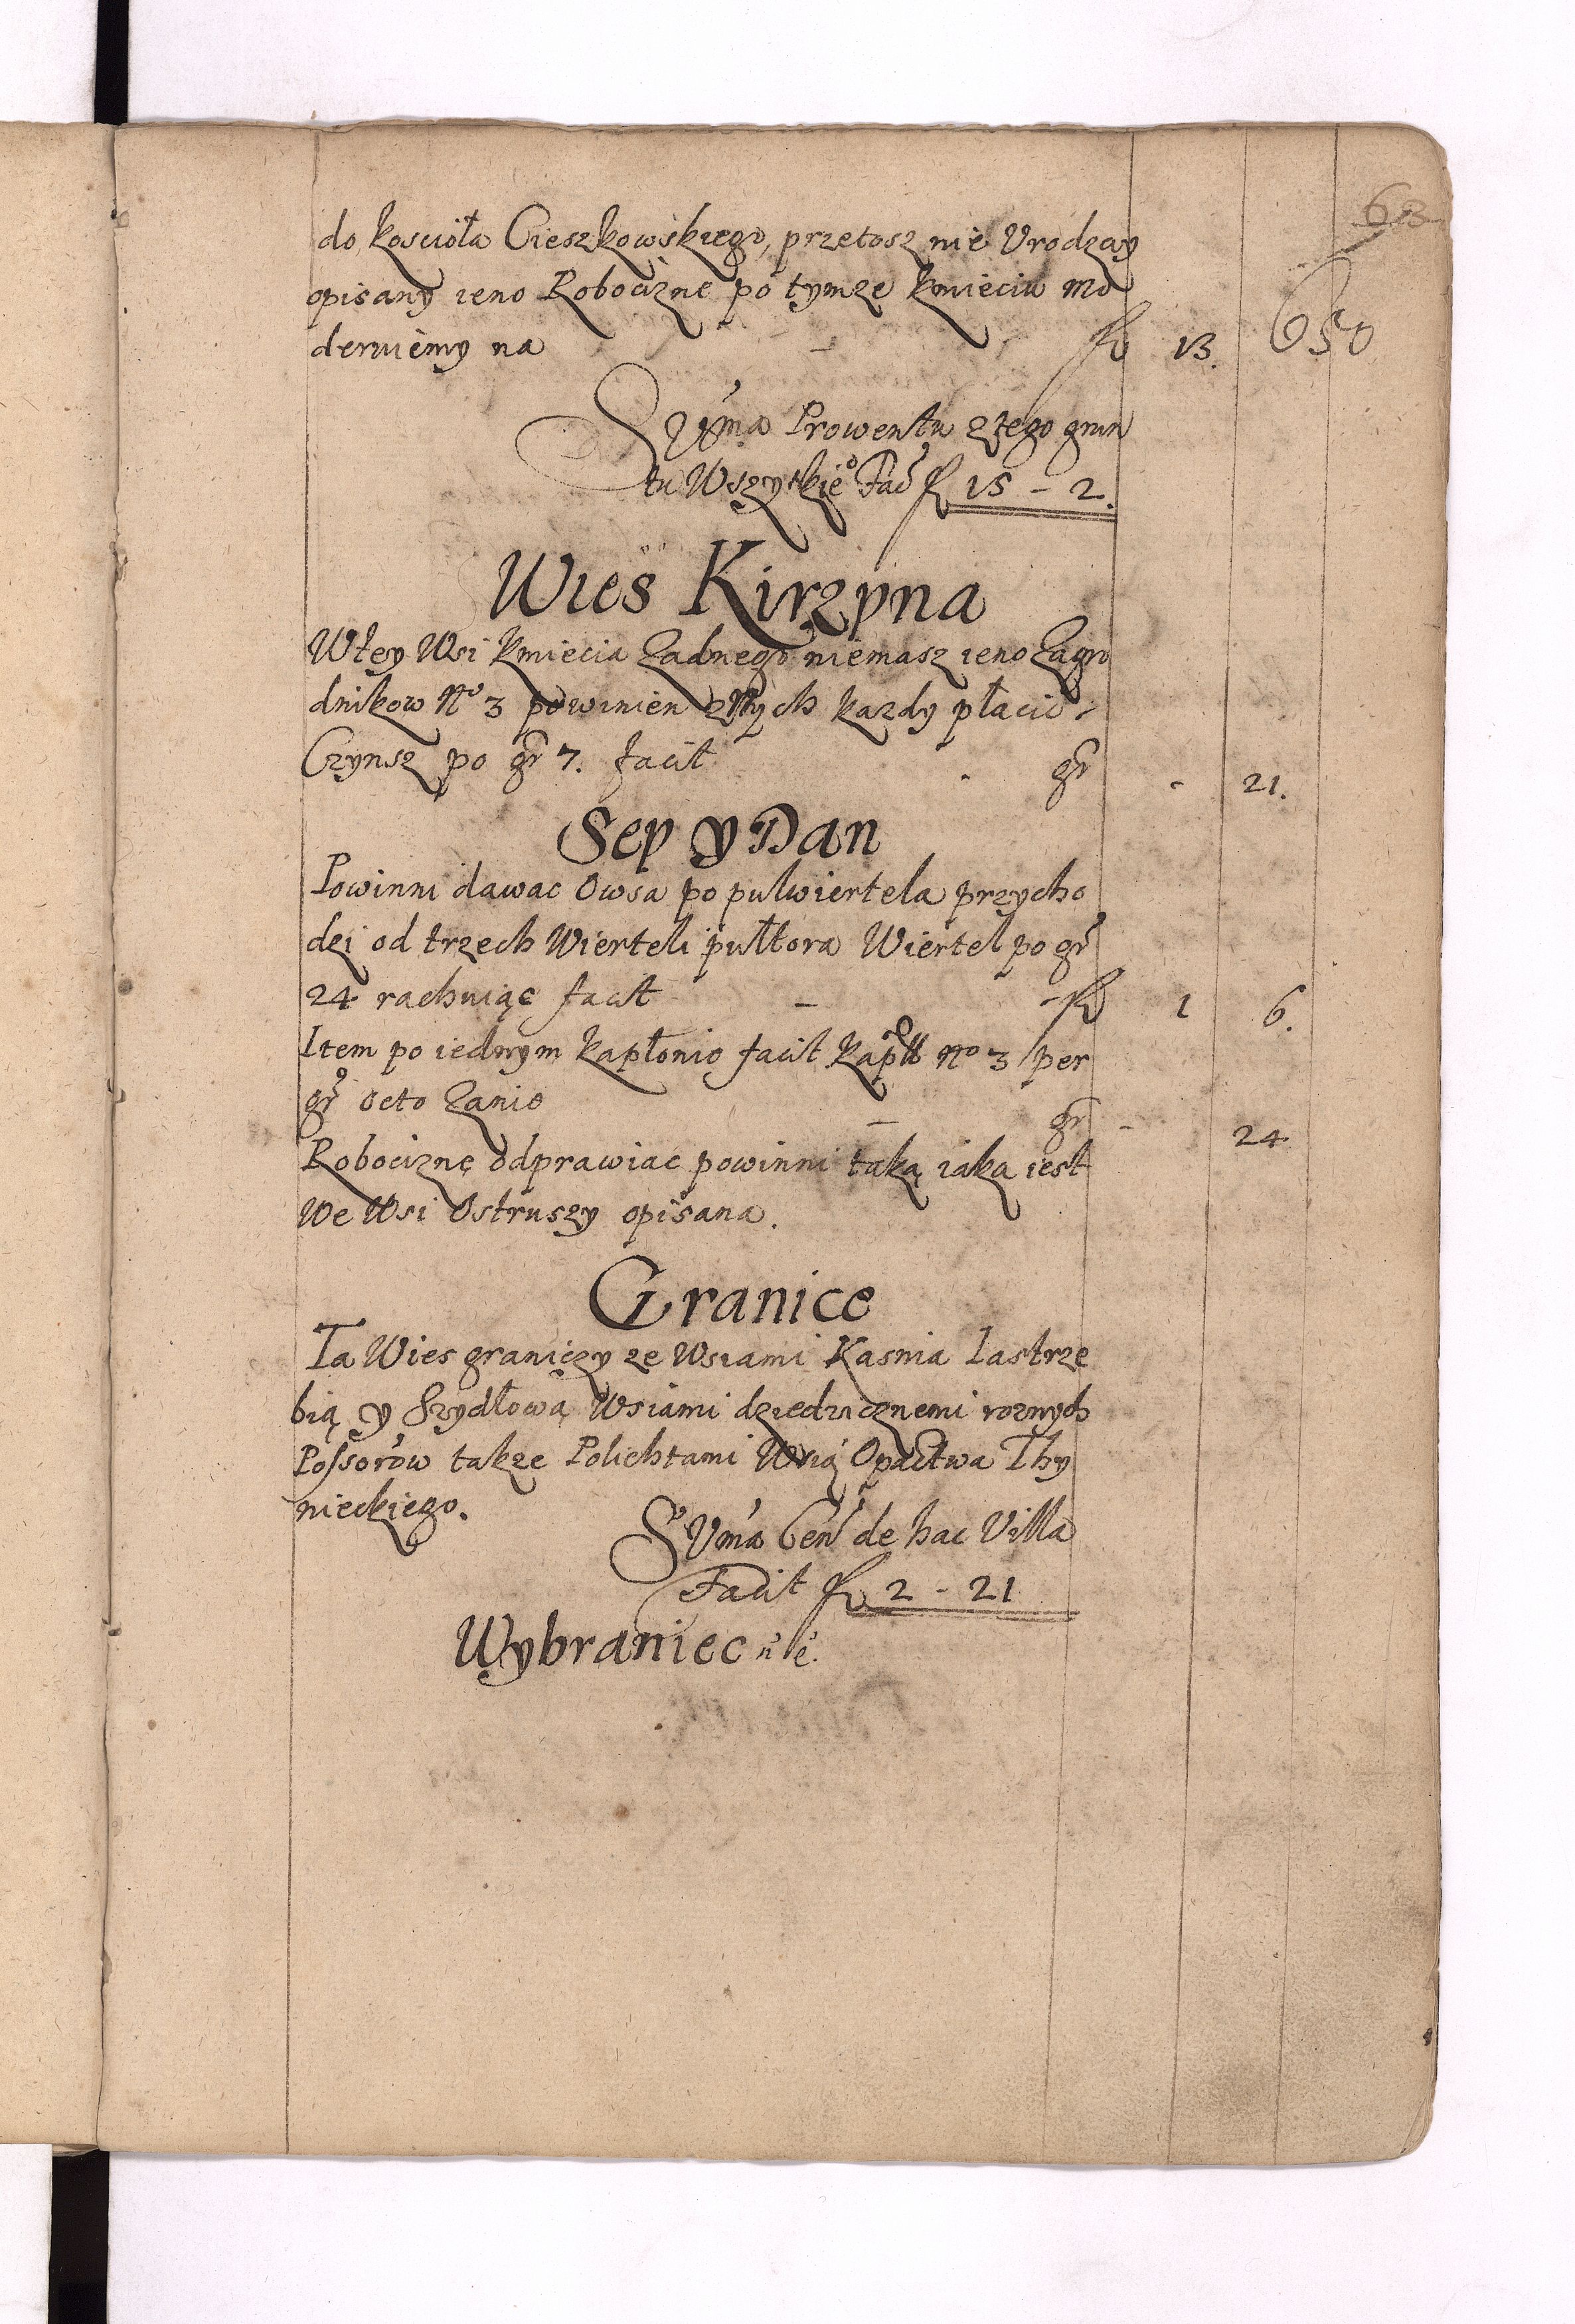 63
do kosciola Cieszkowskiego, przetosz nie Vrodzay
opisany ieno Robocizne po tymze kmieciu mo
deruiemy na - fl 13. 650
Suma Prowentu z tego grun
tu Wszytkieo Fac fl 15 - 2.
Wies Kirzpna
W tey Wsi kmiecia Zadnego niemasz ieno Zagro
dnikow No 3 powinien z nych kazdy płacic
Czynsz po gr 7. facit - gr - 21.
Sep y Dan
Powinni dawac Owsa po pulwiertela przycho
dzi od trzech Wierteli pułtora Wiertel po gr
24 rachuiąc facit - fl 1 6.
Item po iednym kapłonie facit kap No 3 per
gr octo Zanie - gr - 24
Robociznę odprawiac powinni taką iaka iest
We Wsi Ostruszy opisana.
Granice
Ta Wies graniczy ze Wsiami Kasnia Iastrze
bią y Szydłową Wsiami dziedzicznemi roznych
Possorow takze Polichtami Wsią Opactwa Thy
nieckiego.
Suma Cen de hac Villa
Facit fl 2 - 21
Wybraniec n e.